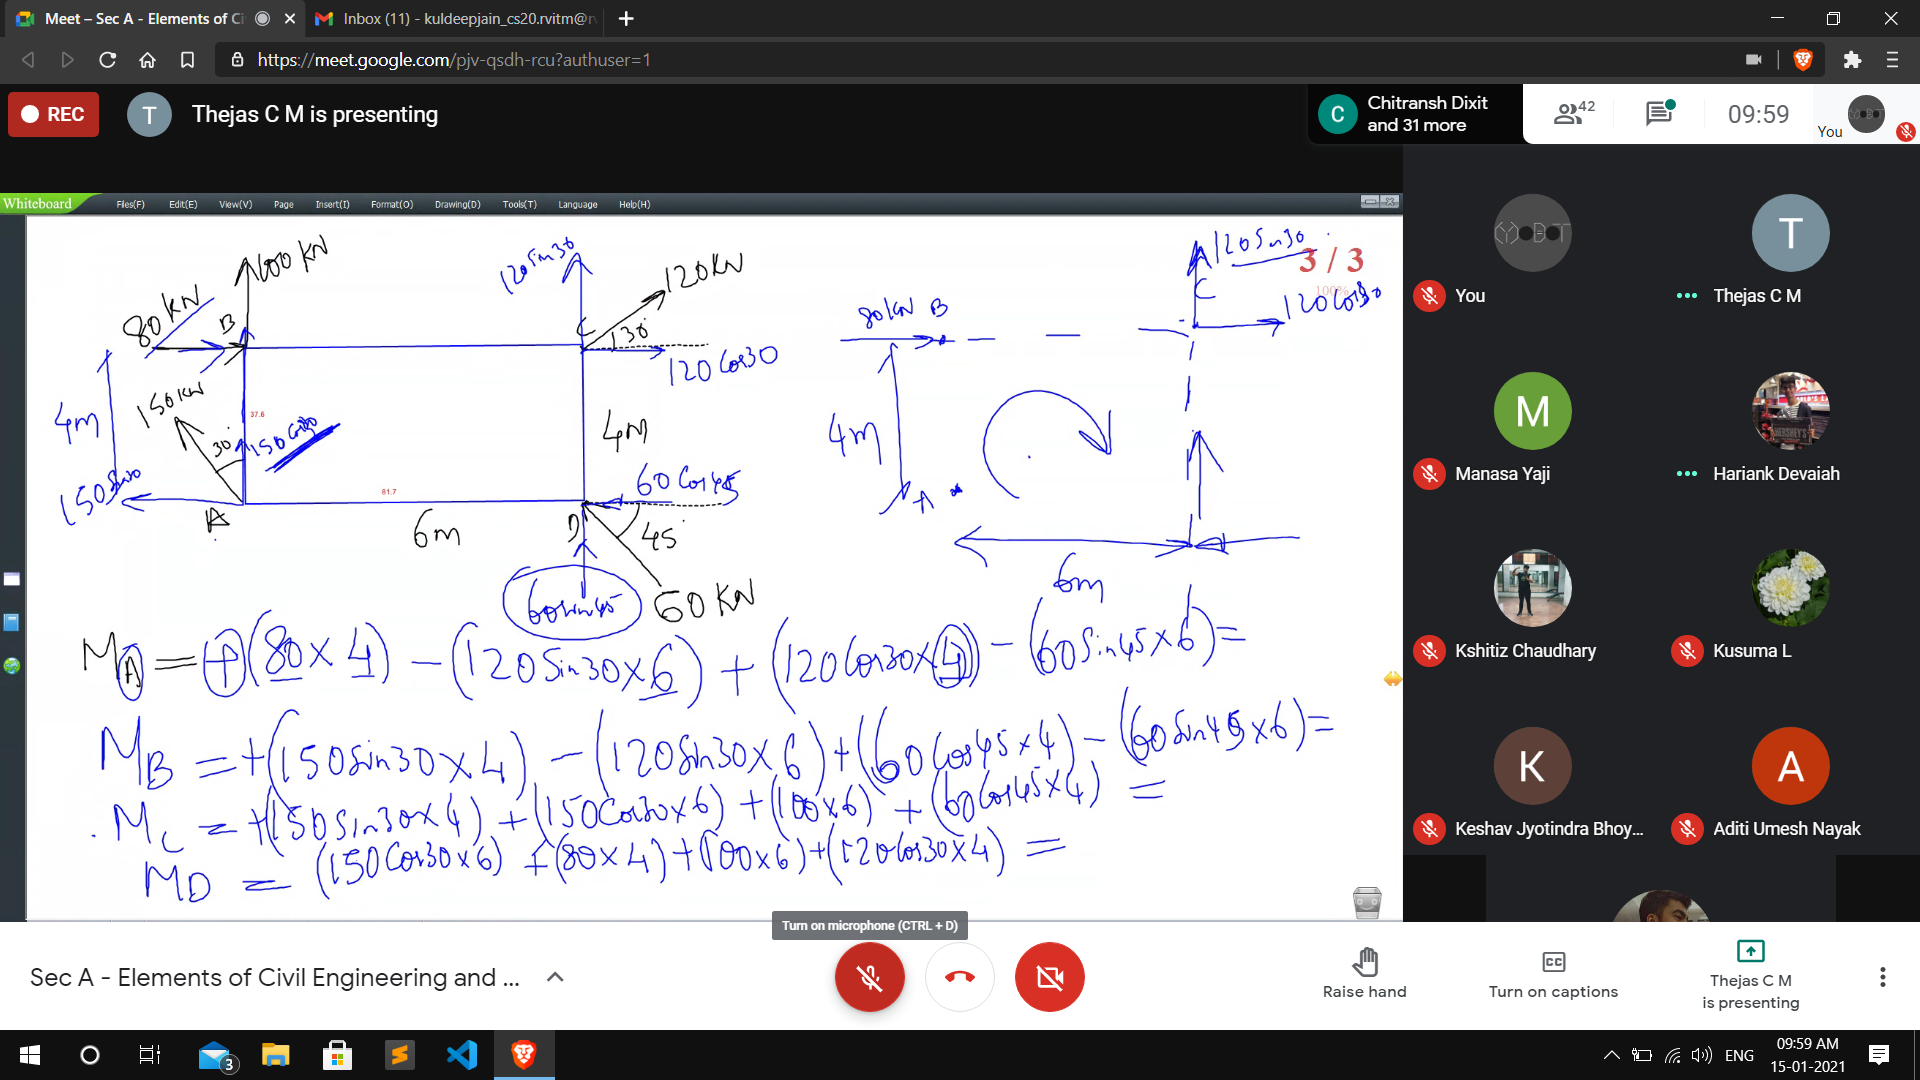 Meet – Sec A - Elements of Ci
Inbox (11) - kuldeepjain_cs20.rvitm@r
https://meet.google.com/pjv-qsdh-rcu?authuser=1
REC
T
Thejas C M is presenting
C
Chitransh Dixit
and 31 more
42
09:59
You
Whiteboard
Files(F) Edit(E) View(V) Page Insert(I) Format(O) Drawing(D) Tools(T) Language Help(H)
3 / 3
100%
100 KN
120 sin 30
120 KN
80 KN
B
C
30°
120 Cos30
150 KN
4m
37.6
30°
150 Cos30
150 Sin30
A
81.7
6m
4m
60 Cos45
D
45°
60 sin 45
60 KN
120 Sin 30
C
120 Cos30
80 KN B
4m
A
6m
MA = + (80 x 4) - (120 Sin 30 x 6) + (120 Cos30 x 4) - (60 Sin 45 x 6) =
MB = + (150 Sin 30 x 4) - (120 Sin 30 x 6) + (60 Cos45 x 4) - (60 Sin 45 x 6) =
MC = + (150 Sin 30 x 4) + (150 Cos30 x 6) + (100 x 6) + (60 Cos45 x 4) =
MD = (150 Cos30 x 6) + (80 x 4) + (100 x 6) + (120 Cos30 x 4) =
You
T
Thejas C M
M
Manasa Yaji
HERSHEY'S
Hariank Devaiah
Kshitiz Chaudhary
Kusuma L
K
Keshav Jyotindra Bhoy...
A
Aditi Umesh Nayak
Turn on microphone (CTRL + D)
Sec A - Elements of Civil Engineering and ...
Raise hand
CC
Turn on captions
Thejas C M
is presenting
3
ENG
09:59 AM
15-01-2021